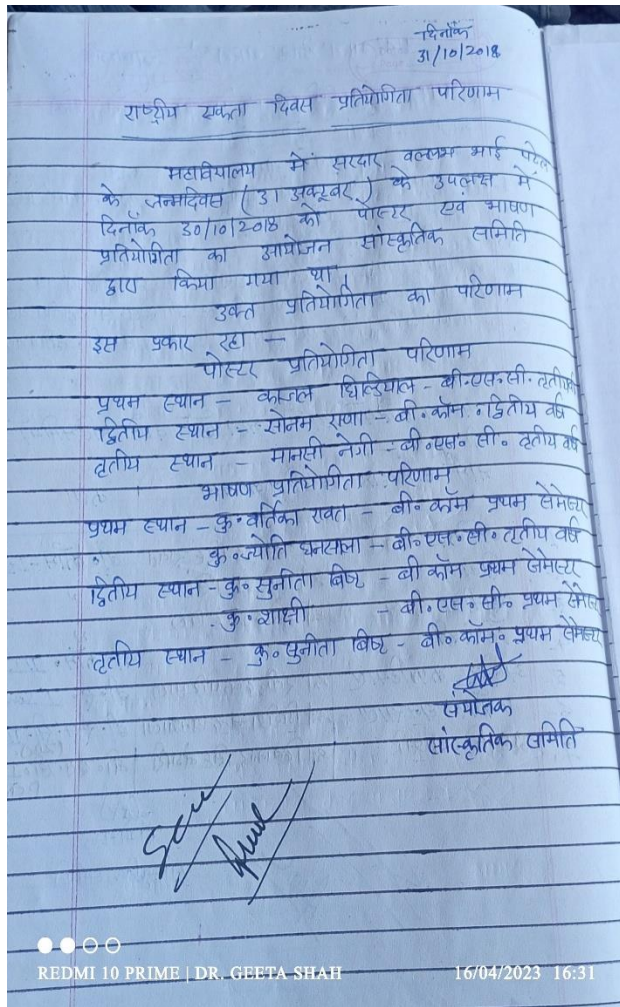 दिनाँक
31/10/2018
राष्ट्रीय एकता दिवस प्रतियोगिता परिणाम
महाविद्यालय में सरदार वल्लभ भाई पटेल
के जन्मदिवस (31 अक्टूबर) के उपलक्ष में
दिनाँक 30/10/2018 को पोस्टर एवं भाषण
प्रतियोगिता का आयोजन सांस्कृतिक समिति
द्वारा किया गया था।
उक्त प्रतियोगिता का परिणाम
इस प्रकार रहा –
पोस्टर प्रतियोगिता परिणाम
प्रथम स्थान – काजल घिल्डियाल – बी०एस०सी०
द्वितीय स्थान – सोनम राणा – बी०कॉम० द्वितीय वर्ष
तृतीय स्थान – मानसी नेगी – बी०एस०सी० तृतीय वर्ष
भाषण प्रतियोगिता परिणाम
प्रथम स्थान – कु०वर्तिका रावत – बी०कॉम प्रथम सेमेस्टर
कु०ज्योति धनसाला – बी०एस०सी० तृतीय वर्ष
द्वितीय स्थान – कु० सुनीता बिष्ट – बी कॉम प्रथम सेमेस्टर
कु० शाक्षी – बी०एस०सी० प्रथम सेमेस्टर
तृतीय स्थान – कु० सुनीता बिष्ट – बी०कॉम० प्रथम सेमेस्टर
संयोजक
सांस्कृतिक समिति
REDMI 10 PRIME | DR. GEETA SHAH 16/04/2023 16:31